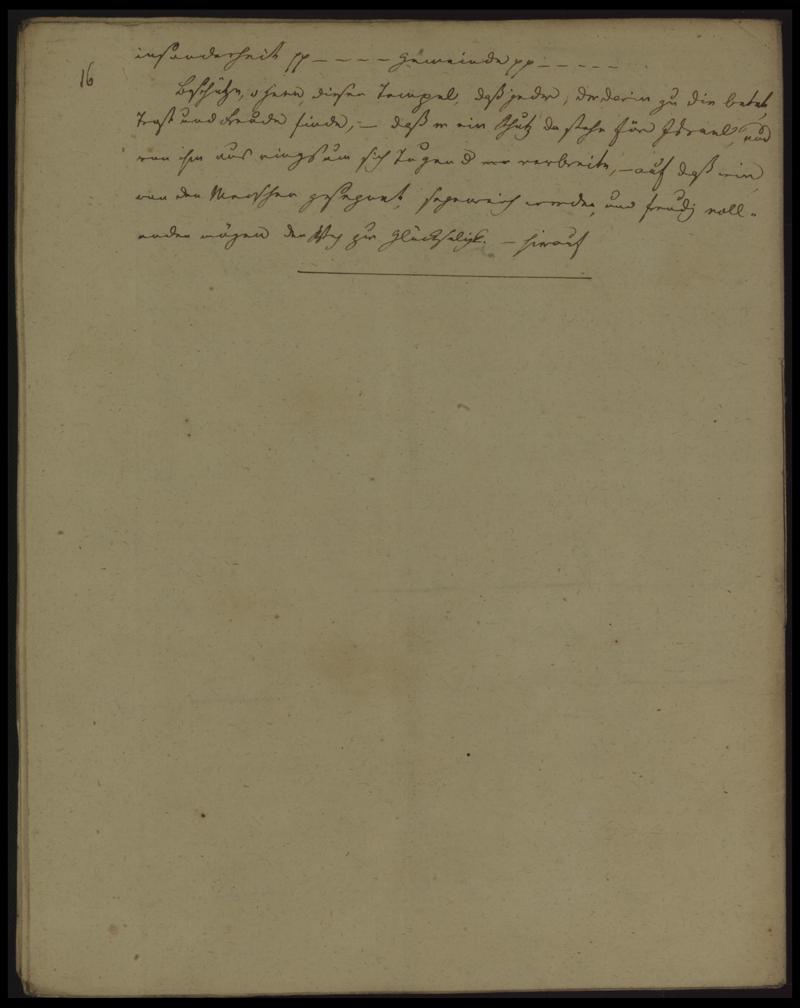 16
insonderheit pp – – – – Gemeinde pp – – – – –
Beschütze, o Herr, diesen Tempel, daß jeder, der darin zu dir betet,
Trost und Freude finde, – daß er ein Schutz da stehe für Israel, und
von ihm aus ringsum sich Tugend verbreite, – auf daß wir,
von den Menschen gesegnet, segensreich werden, und freudig voll-
enden mögen den Weg zur Glückseligk. – hierauf